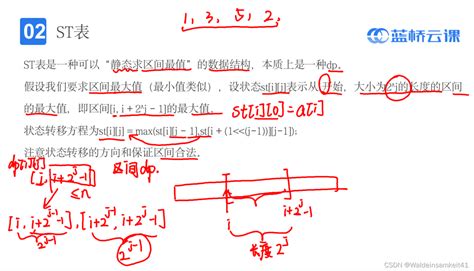 1, 3, 5, 2,
02 ST表
蓝桥云课
ST表是一种可以“静态求区间最值”的数据结构，本质上是一种dp。
假设我们要求区间最大值（最小值类似），设状态st[i][j]表示从i开始，大小为2^j的长度的区间
的最大值，即区间[i, i + 2^j - 1]的最大值。
st[i][0]=a[i]
状态转移方程为st[i][j] = max(st[i][j - 1],st[i + (1<<(j-1))][j-1];
注意状态转移的方向和保证区间合法。
dp[i][j]
区间dp.
[i, i+2^j-1]
≤n
[i, i+2^{j-1}-1], [i+2^{j-1}, i+2^j-1]
2^{j-1}
2^{j-1}
i
i+2^j-1
长度2^j
CSDN @Waldeinsamkeit41